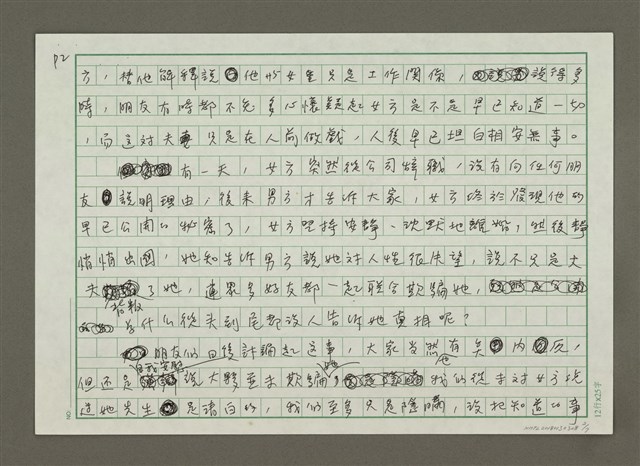 P2
方，替他解釋說他与女生只是工作關係，說得多
時，朋友有時都不免多心懷疑起女方是不是早已知道一切
，而這对夫妻只是在人前做戲，人後早已坦白相安無事。
有一天，女方突然從公司辞職，沒有向任何朋
友說明理由，後來男方才告诉大家，女方終於發現他的
早已公開的秘密了，女方堅持安靜、沈默地離婚，然後靜
悄悄出國，她只告诉男方說她对人性很失望，說不只是丈
夫背叛了她，連眾多好友都一起联合欺騙她，
為什么從头到尾都沒人告诉她真相呢？
朋友們日後討論起这事，大家当然也有矣內疚，
但还是自我安慰說大夥並未欺騙她，我們從未对女方說
过她先生是清白的，我們至多只是隱瞞，沒把知道的事
12行x25字